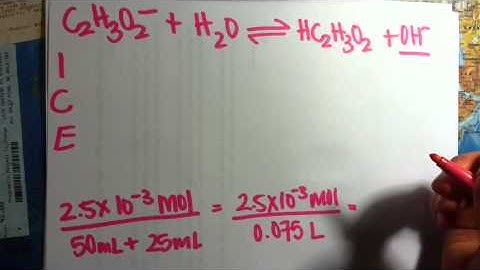 C₂H₃O₂⁻ + H₂O ⇌ HC₂H₃O₂ + OH⁻
I
C
E
2.5×10⁻³ mol / 50mL + 25mL = 2.5×10⁻³ mol / 0.075 L =